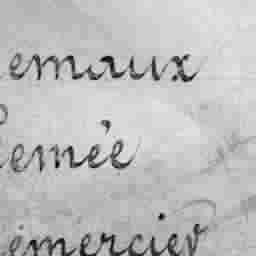 emaux
emée
émercier